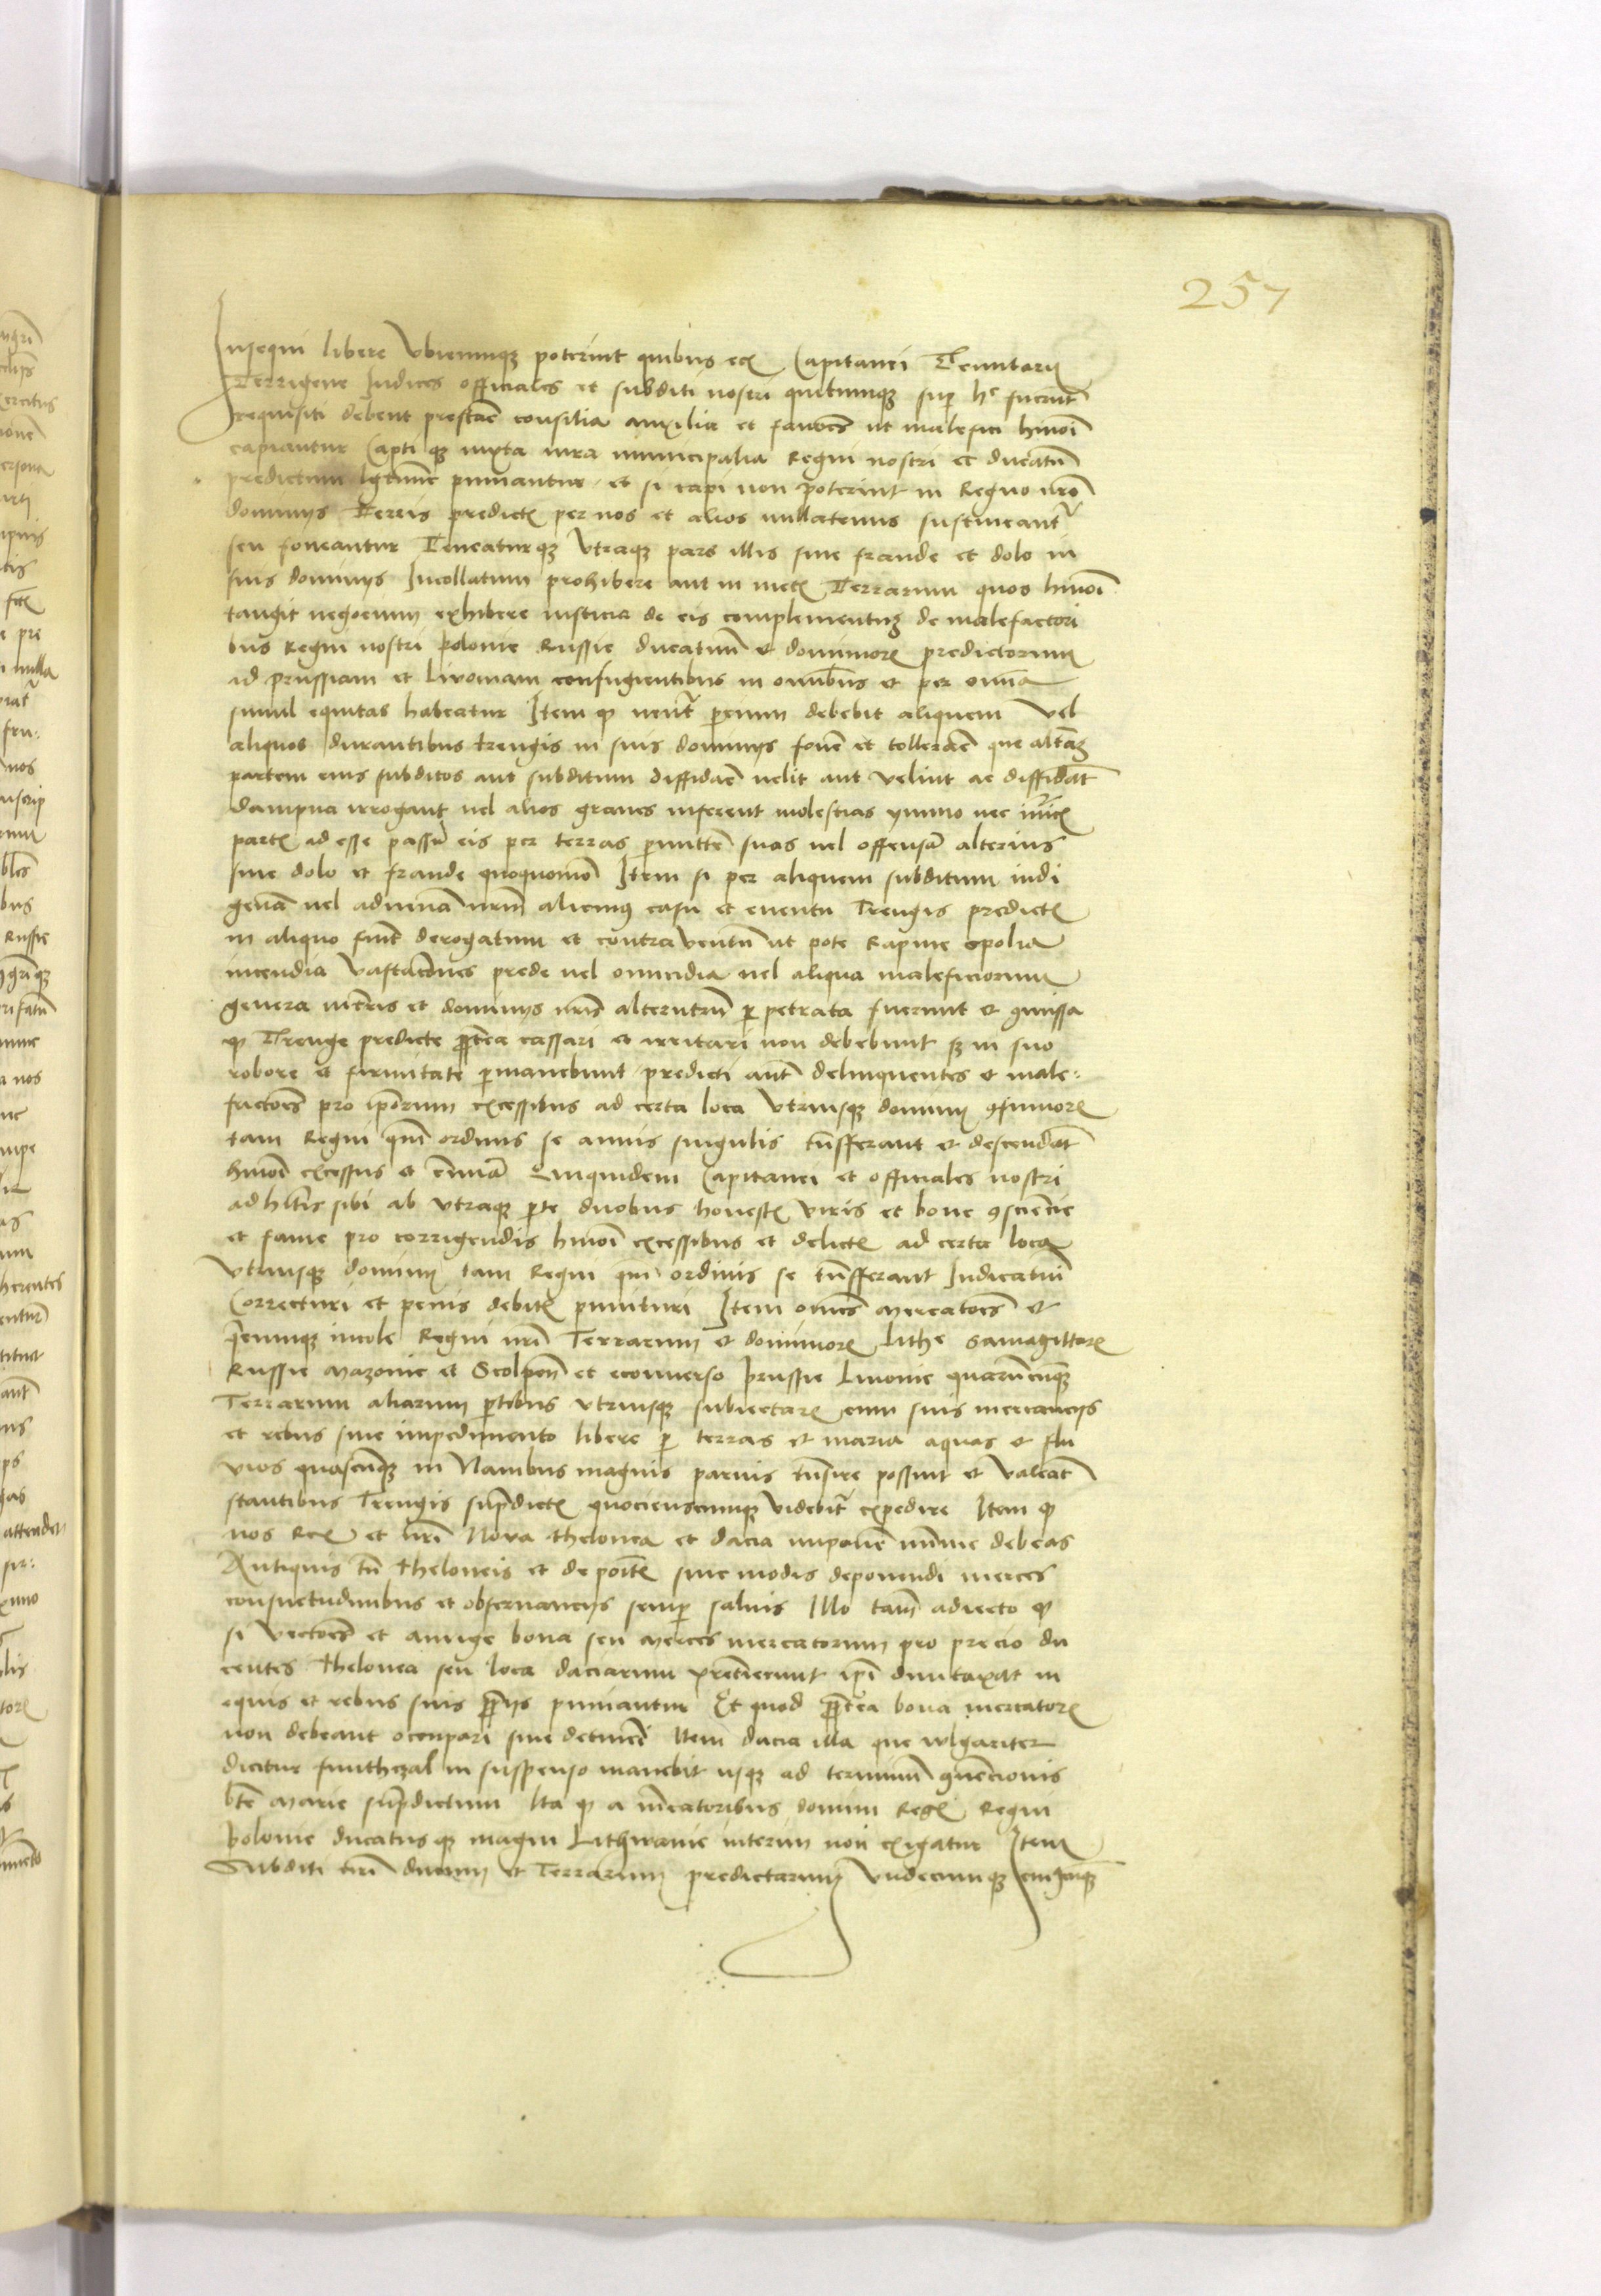 257
Insequi libere Vbicumqz poterint quibus eciam Capitanei Tenutarij
Terrigene Iudices officiales et subditi nostri quicumqz sup hc fuerint
requisiti debent prestare consilia auxilia et fauores ut malefici hmoi
capiantur Capti qz iuxta iura municipalia Regni nostri et ducatuu
predictum lgttime puniantur et si capi non poterint in Regno nro
dominijs Terris predictis per nos et alios nullatenus sustineantr
seu foueantur Teneaturqz Vtraqz pars illis sine fraude et dolo in
suis dominijs Incollatum prohibere aut in metis Terrarum quos hmoi
tangit negocium exhibere iusticia de eis complementum de malefactori
bus Regni nostri Polonie Russie ducatuum et dominiorum predictorum
ad prussiam et Livoniam confugientibus in omnibus et per omnia
simul equitas habeatur Item qp neutr parcium debebit aliquem Vel
aliquos durantibus treugis in suis dominijs fouere et tollerare que alteram
partem eius subditos aut subditum diffidare uelit aut velint ac diffidant
dampna irrogant uel alios graues inferent molestias ymmo nec inimicis
partis ad esse passum eis per terras pmittere suas uel offensam alterius
sine dolo et fraude quoquomodo Item si per aliquem subditum indi
genam uel aduenam nrum alicuius casu et euentu Treugis predictis
in aliquo fuit derogatum et contra uentum ut pote Rapine spolia
incendia vastaciones prede uel omicidia uel aliqua maleficiorum
genera in terris et dominijs nris alterutrum p petrata fuerint et 9missa
qp Treuge predicte propterea cassari et irritari non debebunt sz in suo
robore et firmitate pmanebunt predicti aut delinquentes et male-
factores pro ipsorum excessibus ad certa loca Vtriusqz dominij 9finiorum
tam Regni qm ordinis se annis singulis transferant et descendant
hmoi excessus et Quiquidem Capitanei et officiales nostri
adhitis sibi ab vtraqz parte duobus honestis viris et bone 9sciencie
et fame pro corrigendis hmoi excessibus et delictis ad certa loca
Vtriusqz dominij tam Regni qm ordinis se transferant Iudicaturi
Correcturi et penis debitis punituri Item omnes mercatores et
qcumqz incole Regni nri Terrarum et dominiorum Lithe Samagittarum
Russie Mazouie et Stolpen et econuerso prussie Liuonie quarumcumqz
Terrarum aliarum ptibus vtriusqz subiectarum cum suis mercancijs
et rebus sine impedimento libere p terras et maria aquas et flu
vios quascumqz in Nauibus magnis paruis transire possint et Valeant
stantibus Treugis supradictis quocienscumqz videbitr expedire Item qp
nos Rex et nri Nova thelonea et dacia imponere minime debeas
Antiquis tn theloneis et depositis siue modis deponendi merces
consuetudinibus et obseruancijs semp saluis Illo tamen adiecto qp
si vectores et aurige bona seu merces mercatorum pro precio du
centes thelonea seu loca daciarum pretierint ipsi dumtaxat in
equis et rebus suis pprijs puniantur Et quod ppterea bona mercatorum
non debeant occupari siue detineri Item dacia illa que wlgariter
dicitur funthczal in suspenso manebit usqz ad terminum 9uencionis
bte Marie supradictum Ita qp a mercatoribus domini Regis Regni
Polonie ducatus qz magni Lithwanie interim non exigatur Item
Subditi nri ducatuum et Terrarum predictarum Vndecumqz cuiuscumqz